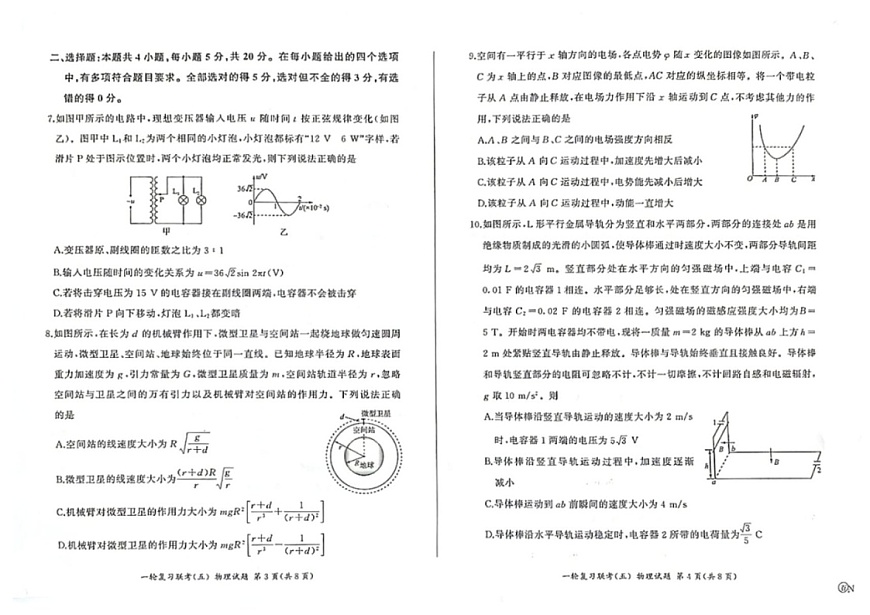 二、选择题:本题共4小题,每小题5分,共20分。在每小题给出的四个选项
中,有多项符合题目要求。全部选对的得5分,选对但不全的得3分,有选
错的得0分。
7.如图甲所示的电路中,理想变压器输入电压u随时间t按正弦规律变化(如图
乙)。图甲中L₁和L₂为两个相同的小灯泡,小灯泡都标有“12 V 6 W”字样,若
滑片P处于图示位置时,两个小灯泡均正常发光,则下列说法正确的是
~u P L₁ L₂
甲
u/V
36√2
0 1 2 t/(×10⁻² s)
-36√2
乙
A.变压器原、副线圈的匝数之比为3∶1
B.输入电压随时间的变化关系为u=36√2sin 2πt(V)
C.若将击穿电压为15 V的电容器接在副线圈两端,电容器不会被击穿
D.若将滑片P向下移动,灯泡L₁、L₂都变暗
8.如图所示,在长为d的机械臂作用下,微型卫星与空间站一起绕地球做匀速圆周
运动,微型卫星、空间站、地球始终位于同一直线。已知地球半径为R,地球表面
重力加速度为g,引力常量为G,微型卫星质量为m,空间站轨道半径为r,忽略
空间站与卫星之间的万有引力以及机械臂对空间站的作用力。下列说法正确
的是
d 微型卫星
空间站
r
R 地球
A.空间站的线速度大小为R√(g/(r+d))
B.微型卫星的线速度大小为((r+d)R/r)√(g/r)
C.机械臂对微型卫星的作用力大小为mgR²[(r+d)/r³+1/(r+d)²]
D.机械臂对微型卫星的作用力大小为mgR²[(r+d)/r³-1/(r+d)²]
一轮复习联考(五) 物理试题 第3页(共8页)
9.空间有一平行于x轴方向的电场,各点电势φ随x变化的图像如图所示。A、B、
C为x轴上的点,B对应图像的最低点,AC对应的纵坐标相等。将一个带电粒
子从A点由静止释放,在电场力作用下沿x轴运动到C点,不考虑其他力的作
用,下列说法正确的是
A.A、B之间与B、C之间的电场强度方向相反
B.该粒子从A向C运动过程中,加速度先增大后减小
C.该粒子从A向C运动过程中,电势能先减小后增大
D.该粒子从A向C运动过程中,动能一直增大
φ
O A B C x
10.如图所示,L形平行金属导轨分为竖直和水平两部分,两部分的连接处ab是用
绝缘物质制成的光滑的小圆弧,使导体棒通过时速度大小不变,两部分导轨间距
均为L=2√3 m。竖直部分处在水平方向的匀强磁场中,上端与电容C₁=
0.01 F的电容器1相连。水平部分足够长,处在竖直方向的匀强磁场中,右端
与电容C₂=0.02 F的电容器2相连。匀强磁场的磁感应强度大小均为B=
5 T。开始时两电容器均不带电,现将一质量m=2 kg的导体棒从ab上方h=
2 m处紧贴竖直导轨由静止释放。导体棒与导轨始终垂直且接触良好。导体棒
和导轨竖直部分的电阻可忽略不计,不计一切摩擦,不计回路自感和电磁辐射,
g取10 m/s²。则
A.当导体棒沿竖直导轨运动的速度大小为2 m/s
时,电容器1两端的电压为5√3 V
B.导体棒沿竖直导轨运动过程中,加速度逐渐
减小
C.导体棒运动到ab前瞬间的速度大小为4 m/s
D.导体棒沿水平导轨运动稳定时,电容器2所带的电荷量为√3/5 C
1
B b
h
a
B
2
一轮复习联考(五) 物理试题 第4页(共8页)